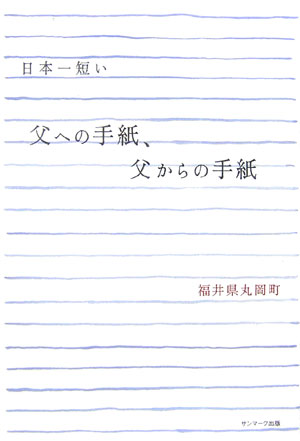 日本一短い
父への手紙、
父からの手紙
福井県丸岡町
サンマーク出版